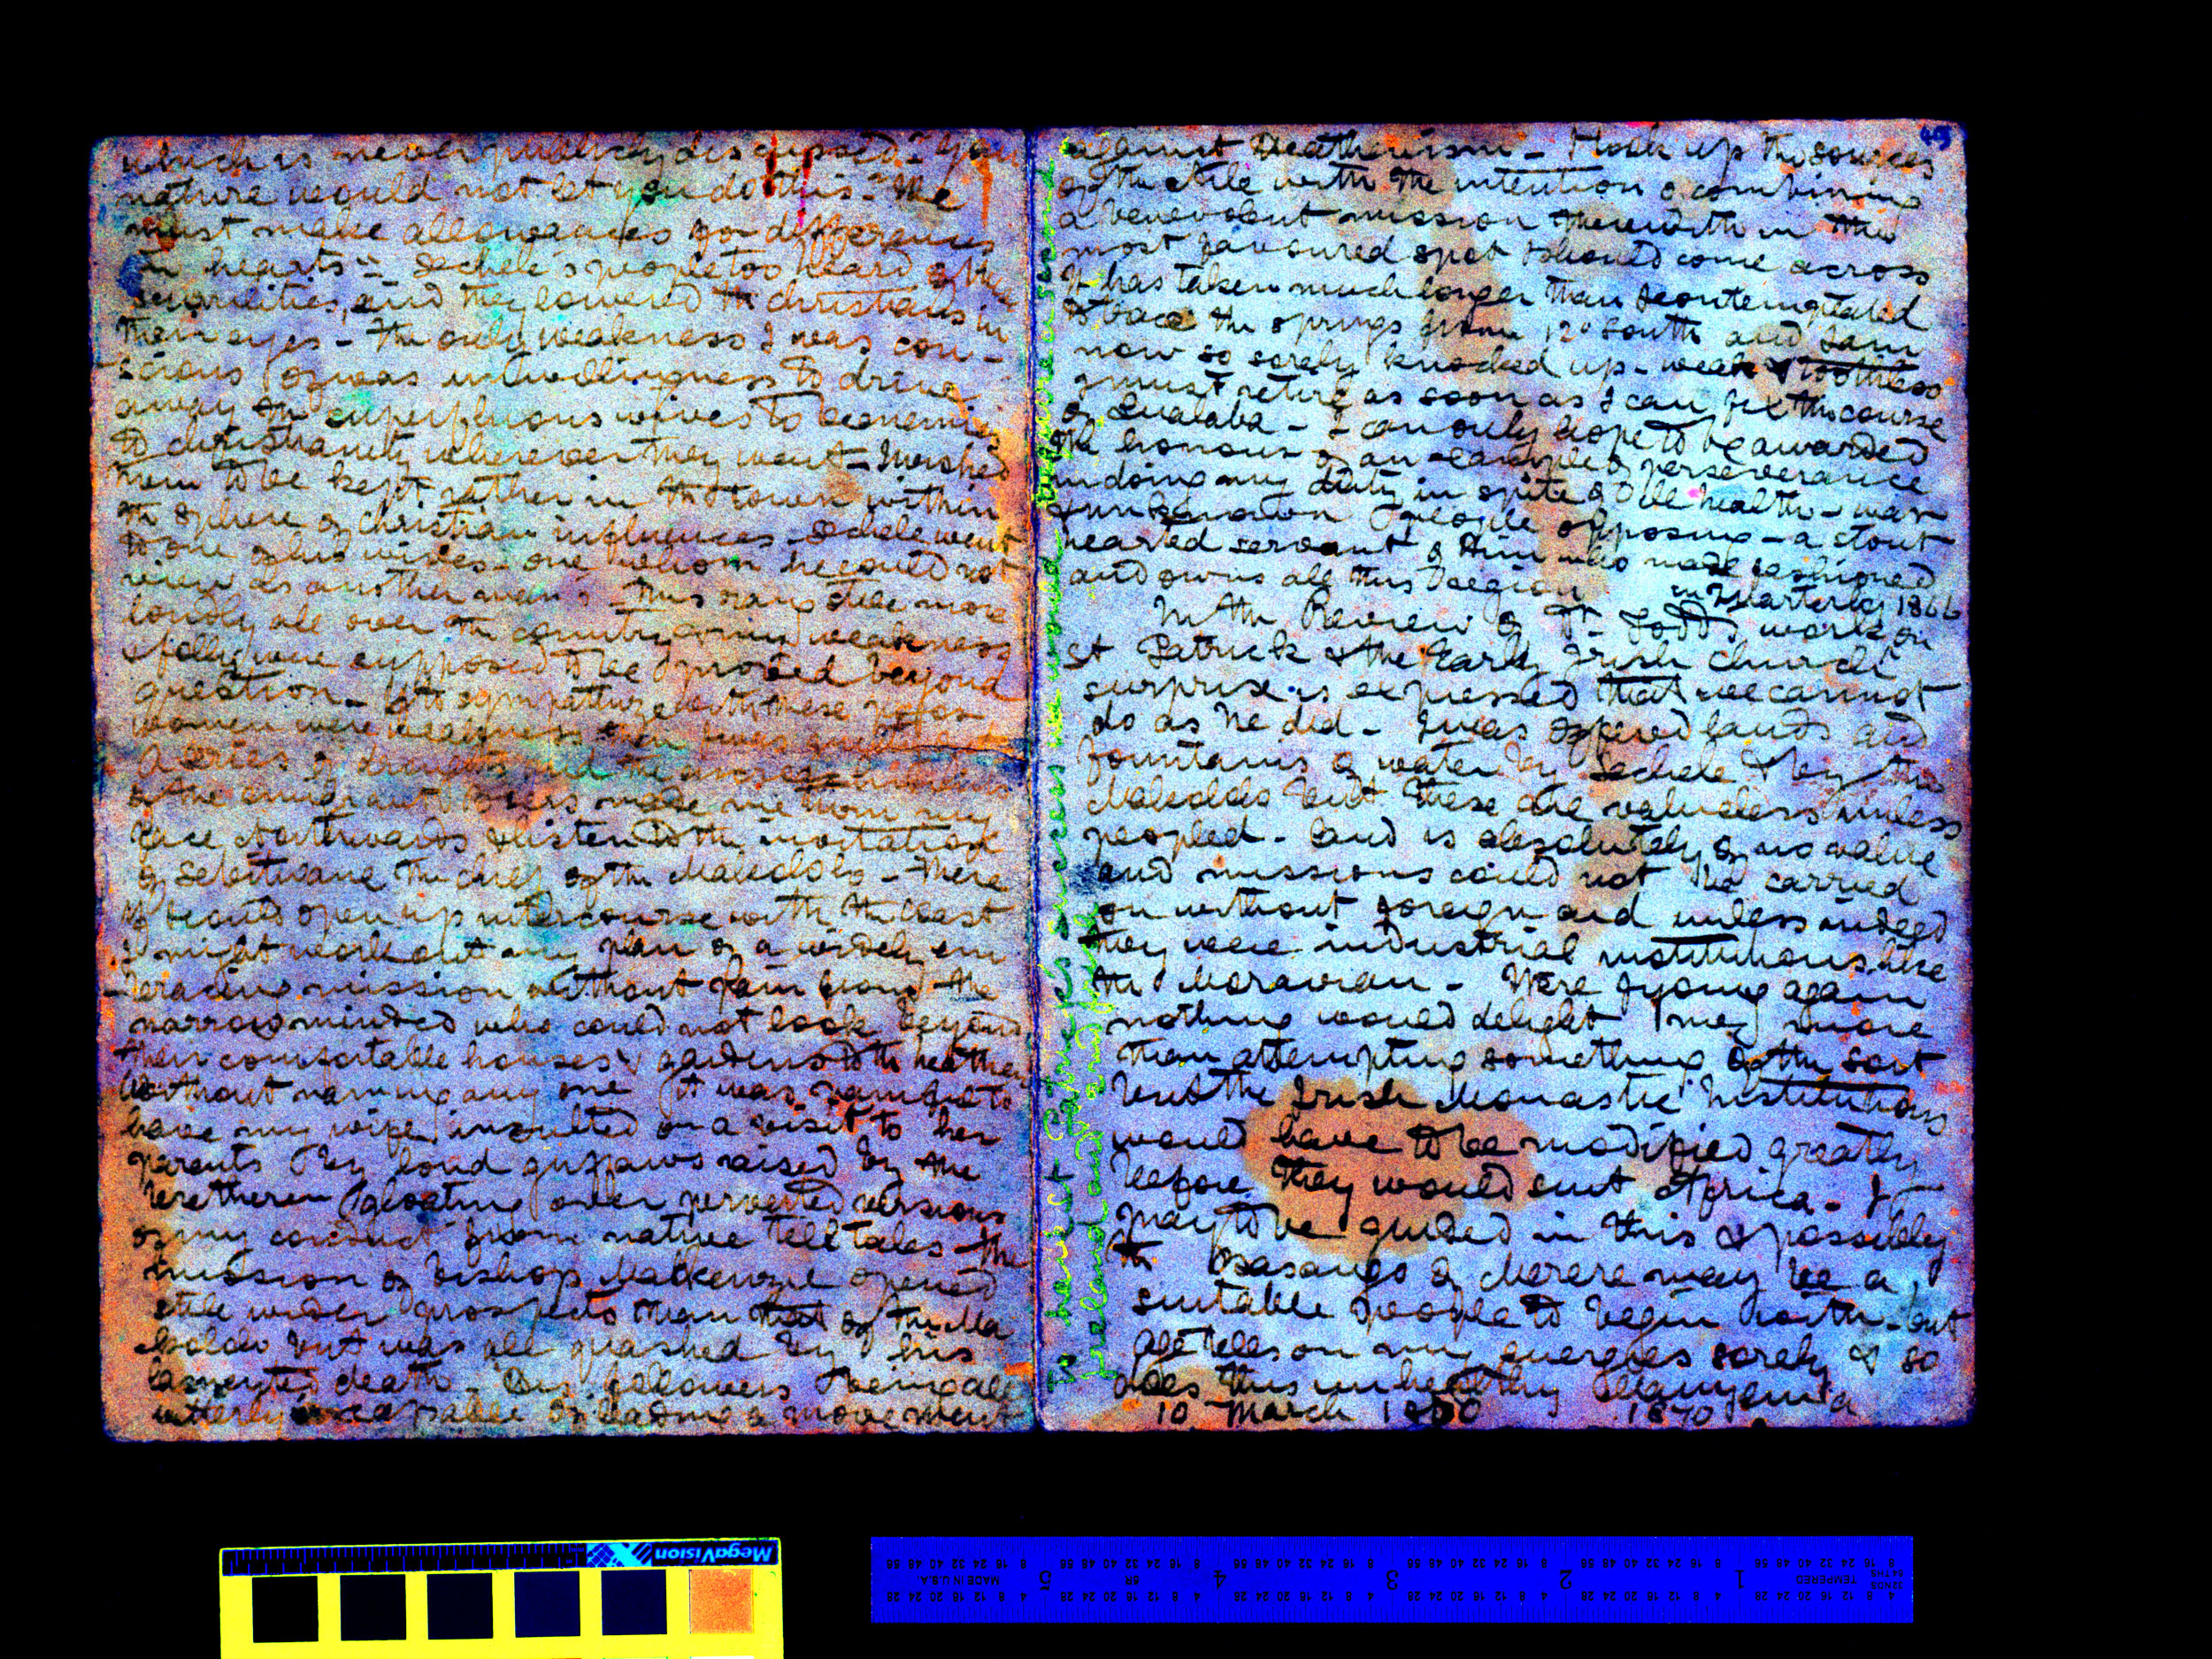 which is never publicly discussed - "your
nature would not let you do this - We
must make allowances for differences
in hearts" - Sechele's people too heard of these
and they lowered the christians in
their eyes - the only weakness I was con-
scious of was unwillingness to drive
away the superfluous wives to be enemies
to christianity wherever they went - I wished
them to be kept rather in the town within
the sphere of christian influences - Sechele went
to one of his wives - one whom he could not
view as another man's This rang still more
loudly all over the country & my weakness
& folly were supposed to be proved beyond
question - to sympathize with these poor
women were weakness then I was guilty but
a series of droughts and the
of the emigrant Boers made me turn my
face Northwards & listen to the invitation
of Sebituane the chief of the Makololo - There
if I could open up intercourse with the coast
I might work out my plan of a widely em
-bracing mission without pain from the
narrow minded who could not look beyond
their comfortable houses & gardens to the heathen
Without naming any one it was painful to
have my wife insulted on a visit to her
parents by loud guffaws raised by the
bretheren gloating over perverted versions
of my conduct from native tell tales - The
mission of Bishop Mackenzie opened
still wider prospects than that of the Ma
kololo but was all quashed by his
lamented death - His followers being all
utterly incapable of leading a movement
against Heathenism - I took up the sources
of the Nile with the intention of combining
a benevolent mission therewith in the
most favoured spot I should come across
It has taken much longer than I contemplated
to trace the springs from 12° South and I am
now so sorely knocked up - weak & toothless
I must retire as soon as I can fix the course
of Lualaba - I can only hope to be awarded
the honour of an example of perseverance
in doing my duty in spite of ill health - war
& unknown people opposing - a stout
hearted servant of Him who made fashioned
and owns all this region
in Quarterly 1866
In the Review of Dr Todd's work on
St Patrick & the Early Irish Church
surprise is expressed that we cannot
do as he did - I was offered lands and
fountains of water by Sechele & by the
Makololo but these are valueless unless
peopled - land is absolutely of no value
and missions could not be carried
on without foreign aid unless indeed
they were industrial institutions like
the Moravian - Were I young again
nothing would delight me more
than attempting something of the sort
but the Irish Monastic Institutions
would have to be modified greatly
before they would suit Africa - I
pray to be guided in this & possibly
the Basango of Merere may be a
suitable people to begin with - but
age tells on my energies sorely & so
does this unhealthy Manyema
10 March 1870 1870